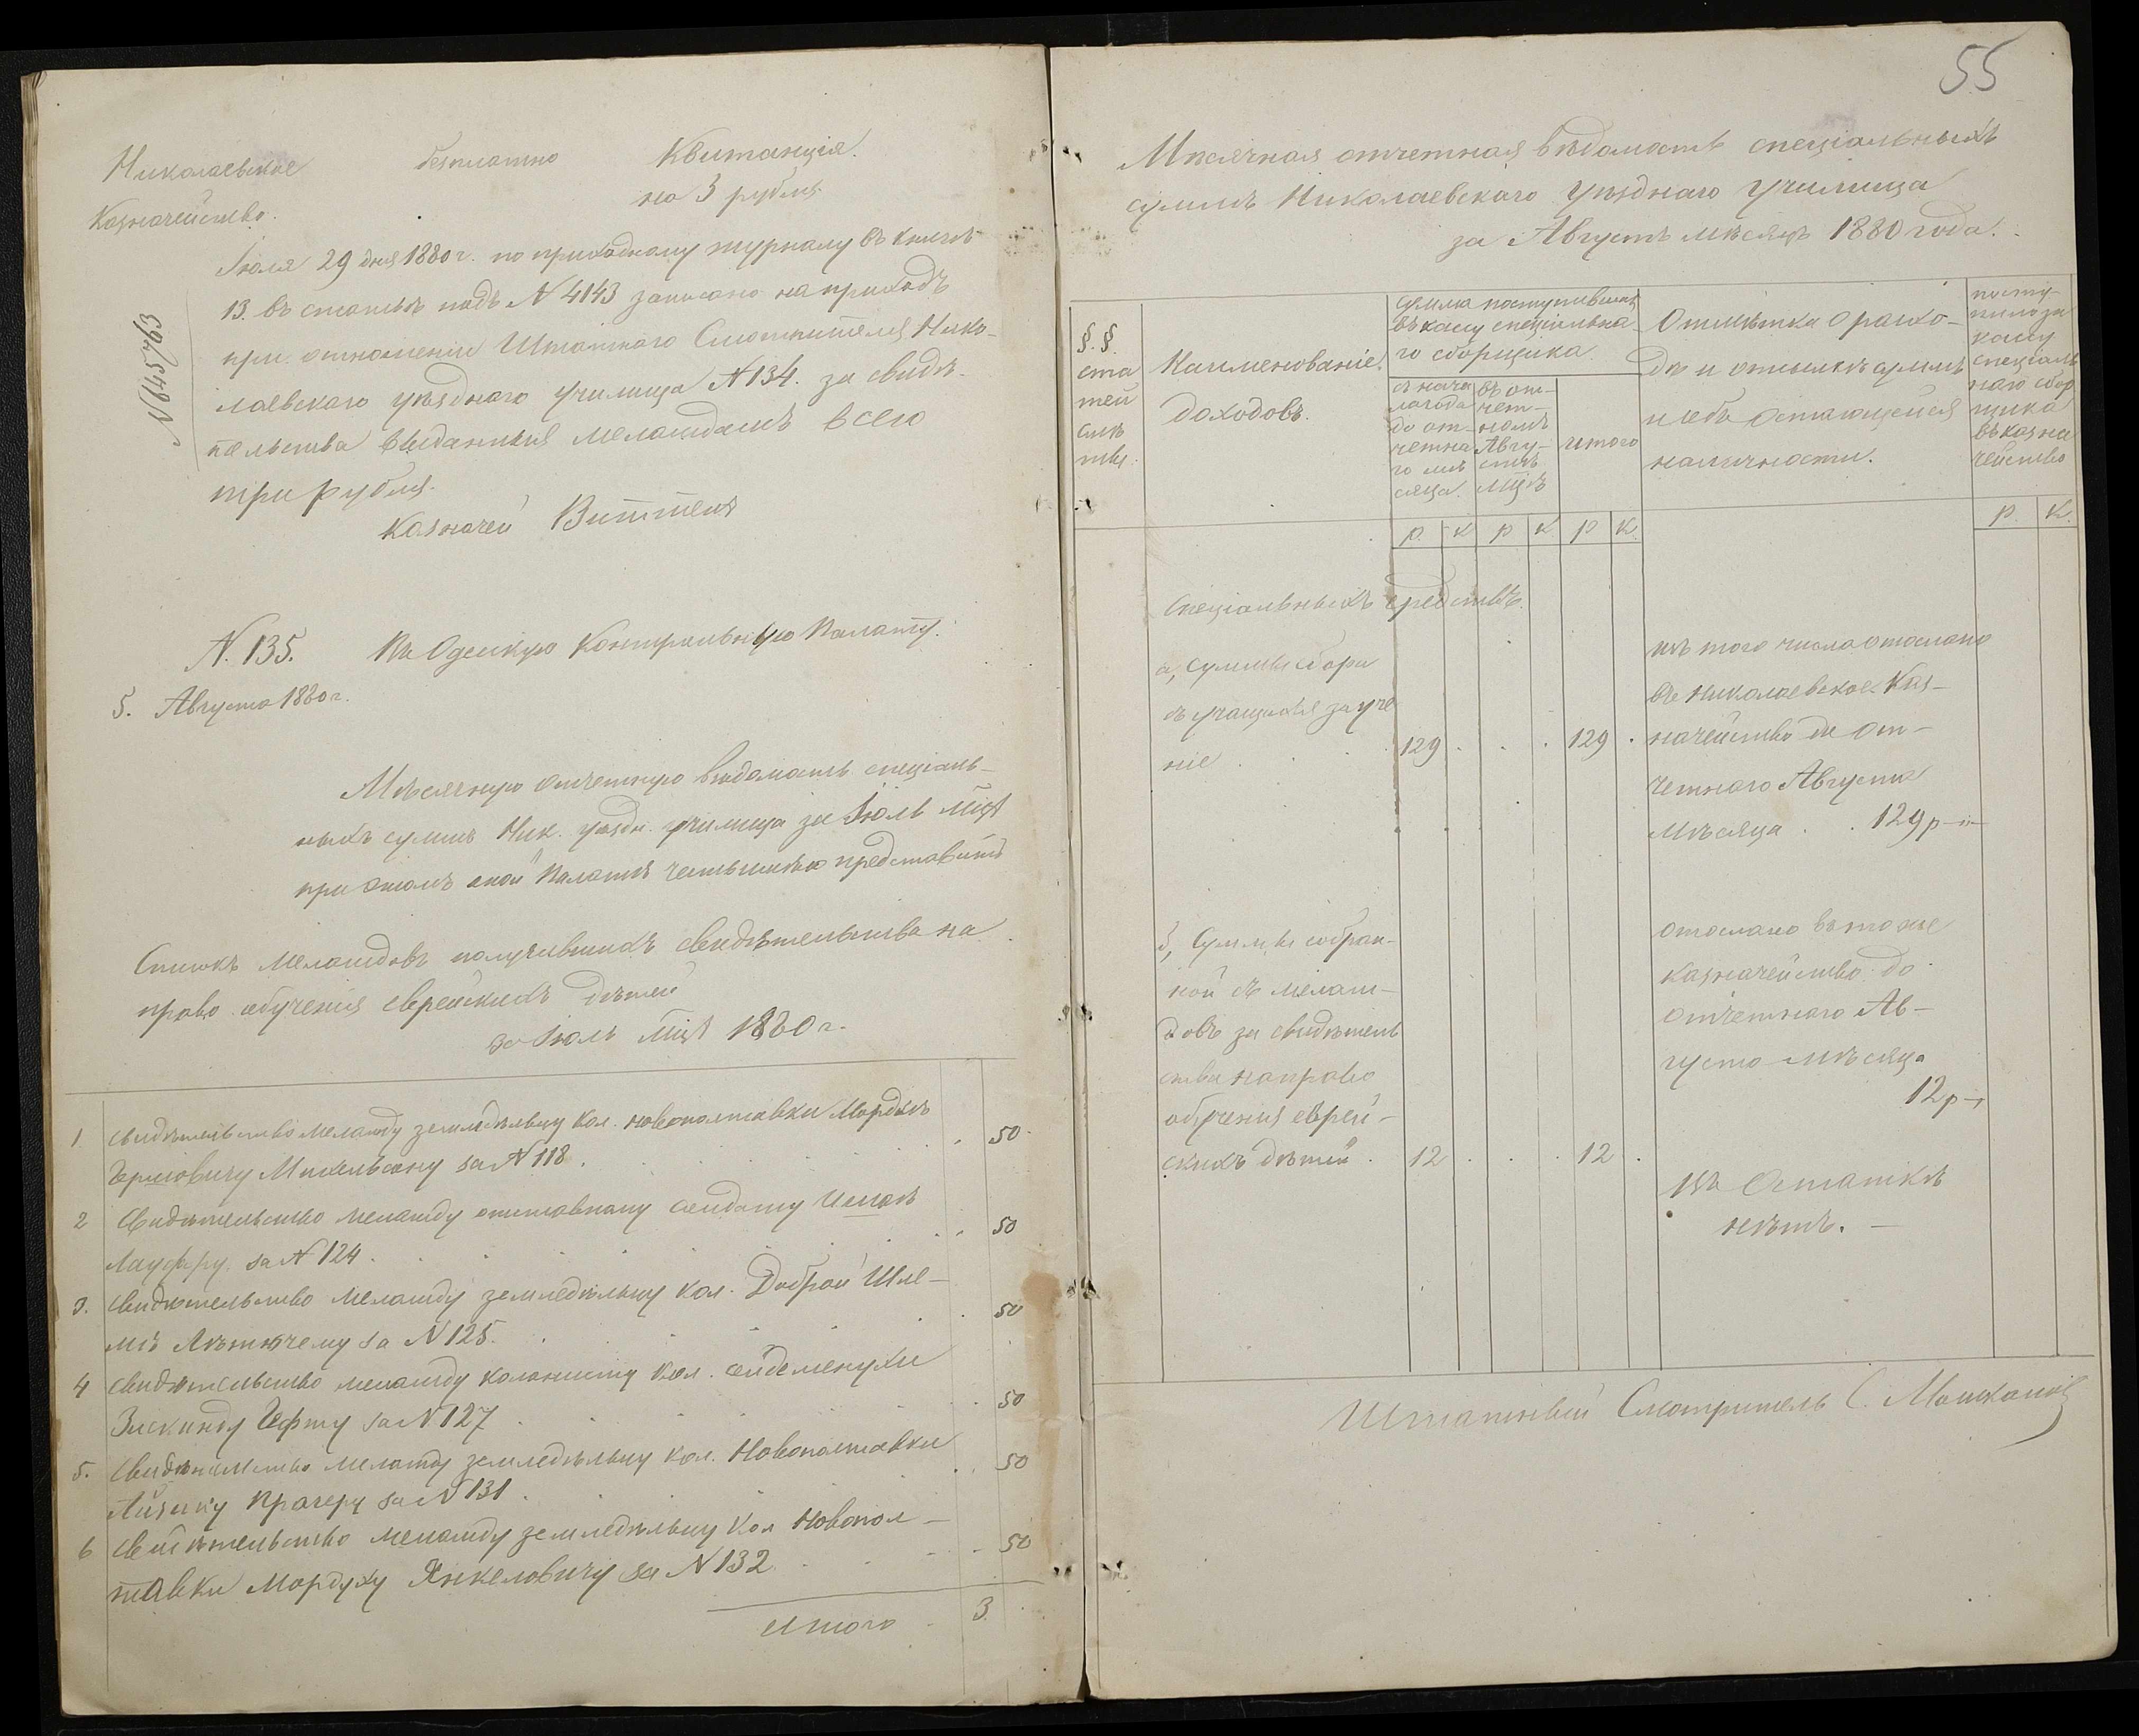 Николаевское безплатно Квитанція.
Казначейство. на 3 рубля.
Іюля 29 дня 1880 г. по приходному журналу въ книгѣ
13. въ статьѣ подъ N 4143 записано на приходъ
при отношеніи Штатнаго Смотрителя Нико-
лаевскаго уѣзднаго училища N 134. за свидѣ-
тельства выданныя меламдамъ всего
три рубля.
Казначей
N. 135. Въ Одесскую Контрольную Палату.
5. Августа 1880 г.
Мѣсячную отчетную вѣдомость спеціаль-
ныхъ суммъ Ник. уѣздн. училища за Іюль мцъ
при этомъ оной Палатѣ честь имѣю представить
Списокъ меламдовъ получившихъ свидѣтельства на
право обученія еврейскихъ дѣтей
за Іюль мцъ 1880 г.
1. Свидѣтельство меламду земледѣльцу кол. Новополтавки Мордыхъ 50
Михельсону за N 118.
2 Свидѣтельство меламду отставному солдату 50
Лауферу за N 124.
3. Свидѣтельство меламду земледѣльцу кол. Доброй Шле- 50
мѣ за N 125.
4 Свидѣтельство меламду колонисту кол. Сейдеменухи
Зискинду Гефту за N 127 50
5. Свидѣтельство меламду земледѣльцу кол. Новополтавки 50
Айзику Прагеру за N 131
6 Свидѣтельство меламду земледѣльцу кол Новопол- 50
тавки Мордуху Янкеловичу за N 132
Итого 3.
55
Мѣсячная отчетная вѣдомость спеціальныхъ
суммъ Николаевскаго Уѣзднаго Училища
за Августъ мѣсяцъ 1880 года.
§.§.
ста
тей
смѣ
ты.
Наименованіе
доходовъ.
Сумма поступившая
въ кассу спеціальна
го сборщика.
съ нача
ла года
до от-
четна
го мѣ
сяца.
въ от-
чет-
номъ
Авгу-
стѣ
мцѣ
итого
Отмѣтка о расхо-
дѣ и отсылкѣ суммъ
и объ остающейся
наличности.
посту-
пило за
кассу
спеціаль
наго сбор
щика
въ казна
чейство
р. к р к р к. р. к.
Спеціальныхъ средствъ.
а, Суммы сбора
съ учащихся за уче
ніе 129 129
изъ того числа отослано
въ Николаевское Каз-
начейство до от-
четнаго Августа
мѣсяца 129 р
б, Суммы собран-
ной съ мелам-
довъ за свидѣтель
ства на право
обученія еврей-
скихъ дѣтей 12 12
отослано въ тоже
казначейство до
отчетнаго Ав-
густа мѣсяца
12 р
Въ Остаткѣ
нѣтъ.
Штатный Смотритель С.